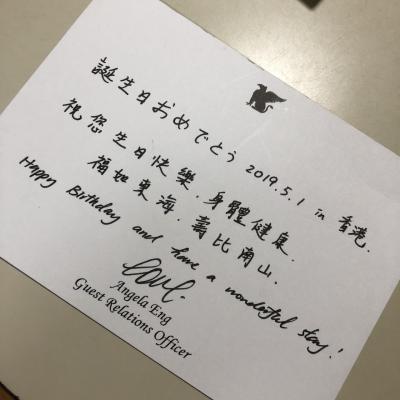 誕生日おめでとう 2019.5.1 in 香港.
祝您生日快樂.身體健康.
福如東海.壽比南山.
Happy Birthday and have a wonderful stay!
Angela Eng
Guest Relations Officer